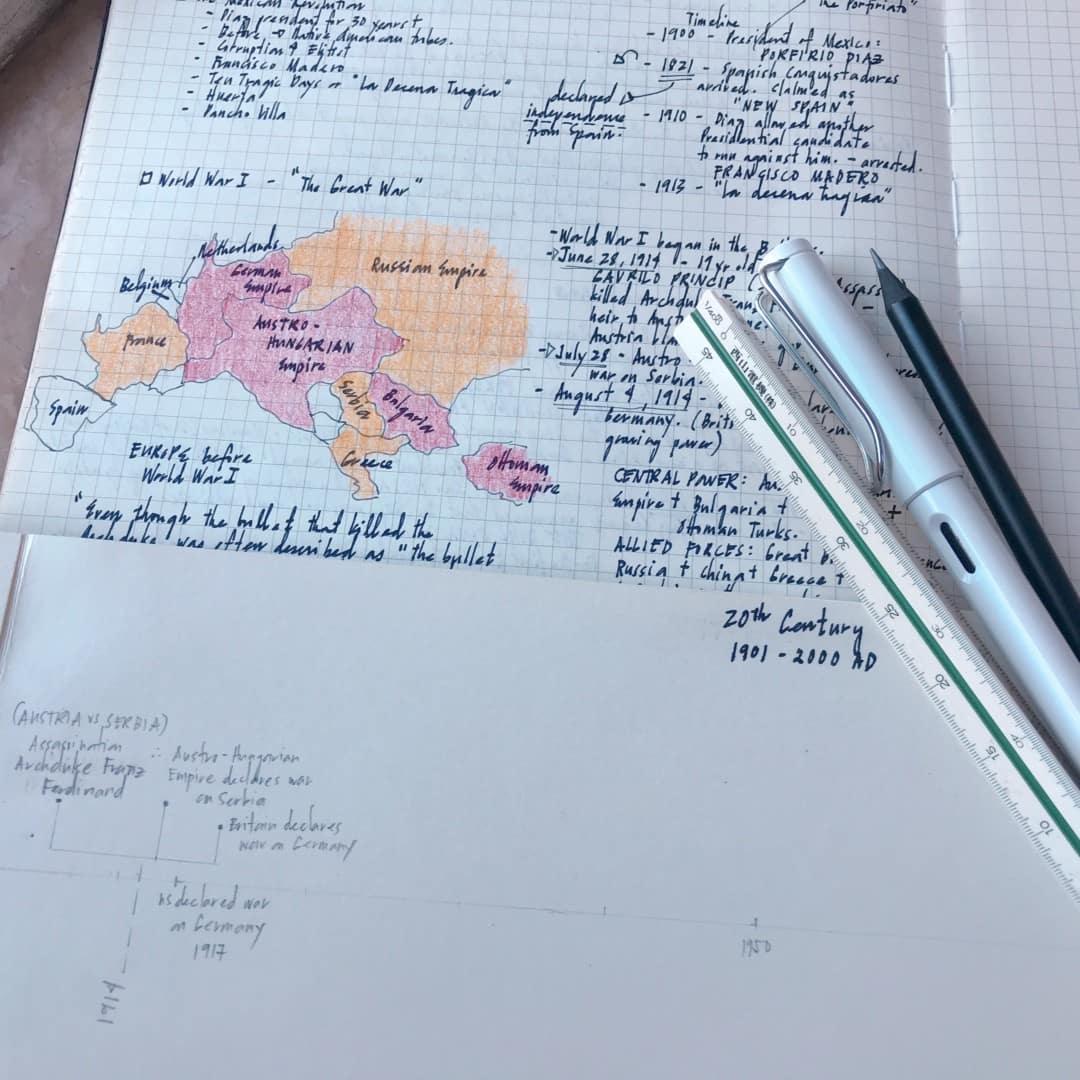 The Mexican Revolution
- Diaz president for 30 years +
- Before → Native American tribes.
- Corruption & Elitist
- Francisco Madero
- Ten Tragic Days or "La Decena Tragica"
- Huerta
- Pancho Villa
the Porfiriato"
Timeline
- 1900 - President of Mexico:
PORFIRIO DIAZ
- 1821 - Spanish Conquistadores
arrived. Claimed as
"NEW SPAIN"
declared
independence
from Spain.
- 1910 - Diaz allowed another
Presidential candidate
to run against him. - arrested.
FRANCISCO MADERO
- 1913 - "La decena tragica"
World War I - "The Great War"
Netherlands
Belgium
German
Empire
Russian Empire
France
AUSTRO-
HUNGARIAN
Empire
Spain
Serbia
Bulgaria
Greece
Ottoman
Empire
EUROPE before
World War I
"Even though the bullet that killed the
Archduke was often described as "the bullet
- World War I began in the
→ June 28, 1914 - 19 yr old
GAVRILO PRINCIP
killed
heir to
Austria
→ July 28 - Austro
war on Serbia.
- August 4, 1914 -
Germany.
growing power)
CENTRAL POWER:
Empire + Bulgaria +
Ottoman Turks.
ALLIED FORCES: Great
Russia + China + Greece +
20th Century
1901 - 2000 AD
(AUSTRIA VS SERBIA)
Assassination
Archduke Franz
Ferdinand
∴ Austro-Hungarian
Empire declares war
on Serbia
Britain declares
war on Germany
US declared war
on Germany
1917
1914
1950
45
40
35
30
25
20
15
10